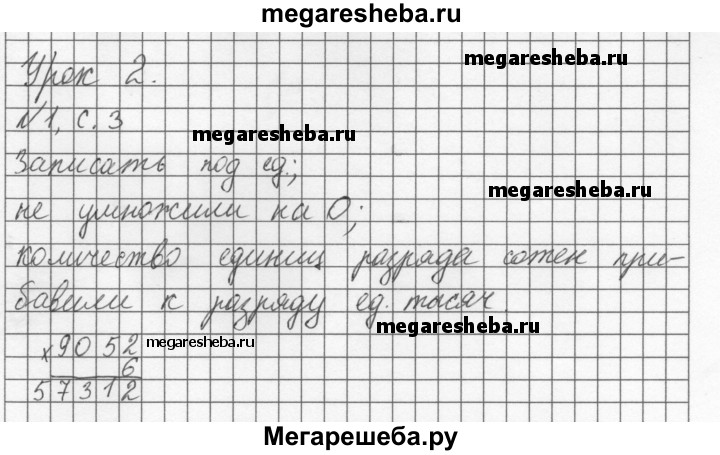 megaresheba.ru
Урок 2.
megaresheba.ru
№1, с. 3
megaresheba.ru
Записать под ед.;
megaresheba.ru
не умножили на 0;
количество единиц разряда сотен при-
бавили к разряду ед. тысяч
megaresheba.ru
×9052
megaresheba.ru
6
57312
Мегарешеба.ру